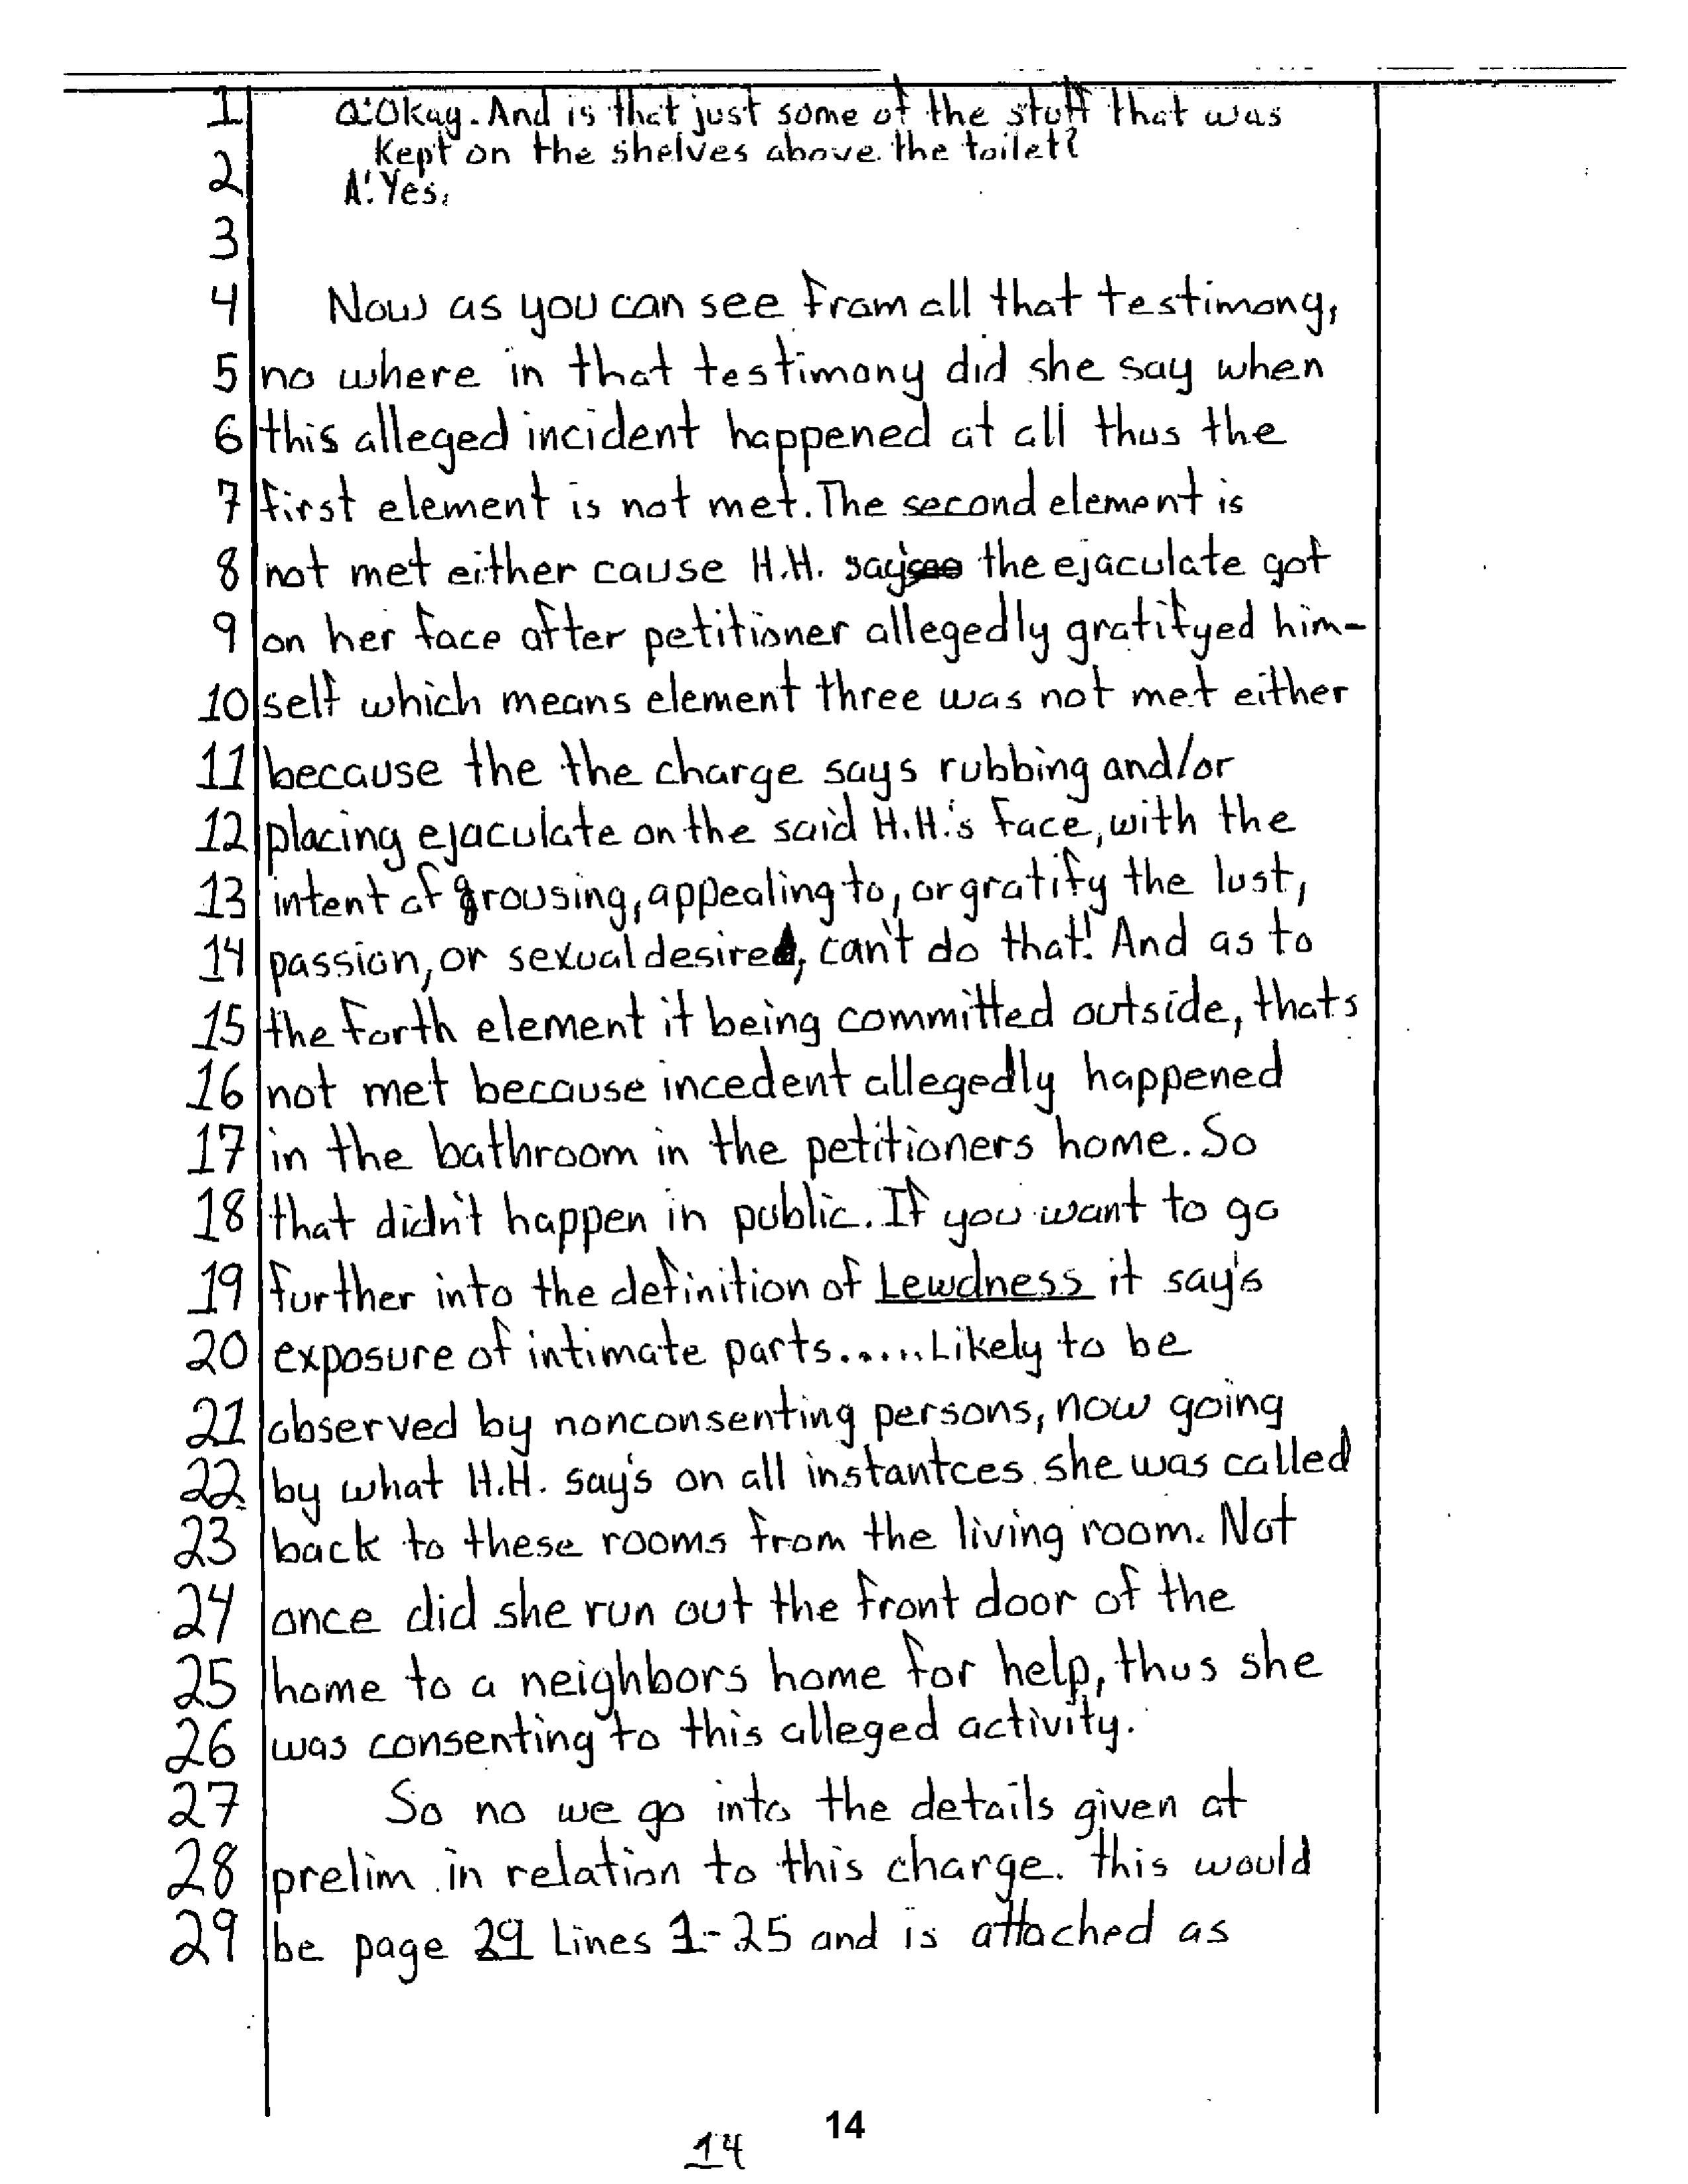 1 Q: Okay. And is that just some of the stuff that was
2 Kept on the shelves above the toilet?
A: Yes.
3
4 Now as you can see from all that testimony,
5 no where in that testimony did she say when
6 this alleged incident happened at all thus the
7 first element is not met. The second element is
8 not met either cause H.H. say's the ejaculate got
9 on her face after petitioner allegedly gratifyed him-
10 self which means element three was not met either
11 because the the charge says rubbing and/or
12 placing ejaculate on the said H.H.'s face, with the
13 intent of arousing, appealing to, or gratify the lust,
14 passion, or sexual desire, can't do that! And as to
15 the forth element it being committed outside, thats
16 not met because incedent allegedly happened
17 in the bathroom in the petitioners home. So
18 that didn't happen in public. If you want to go
19 further into the definition of Lewdness it say's
20 exposure of intimate parts......Likely to be
21 observed by nonconsenting persons, now going
22 by what H.H. say's on all instantces she was called
23 back to these rooms from the living room. Not
24 once did she run out the front door of the
25 home to a neighbors home for help, thus she
26 was consenting to this alleged activity.
27 So no we go into the details given at
28 prelim in relation to this charge. this would
29 be page 29 Lines 1-25 and is attached as
14
14